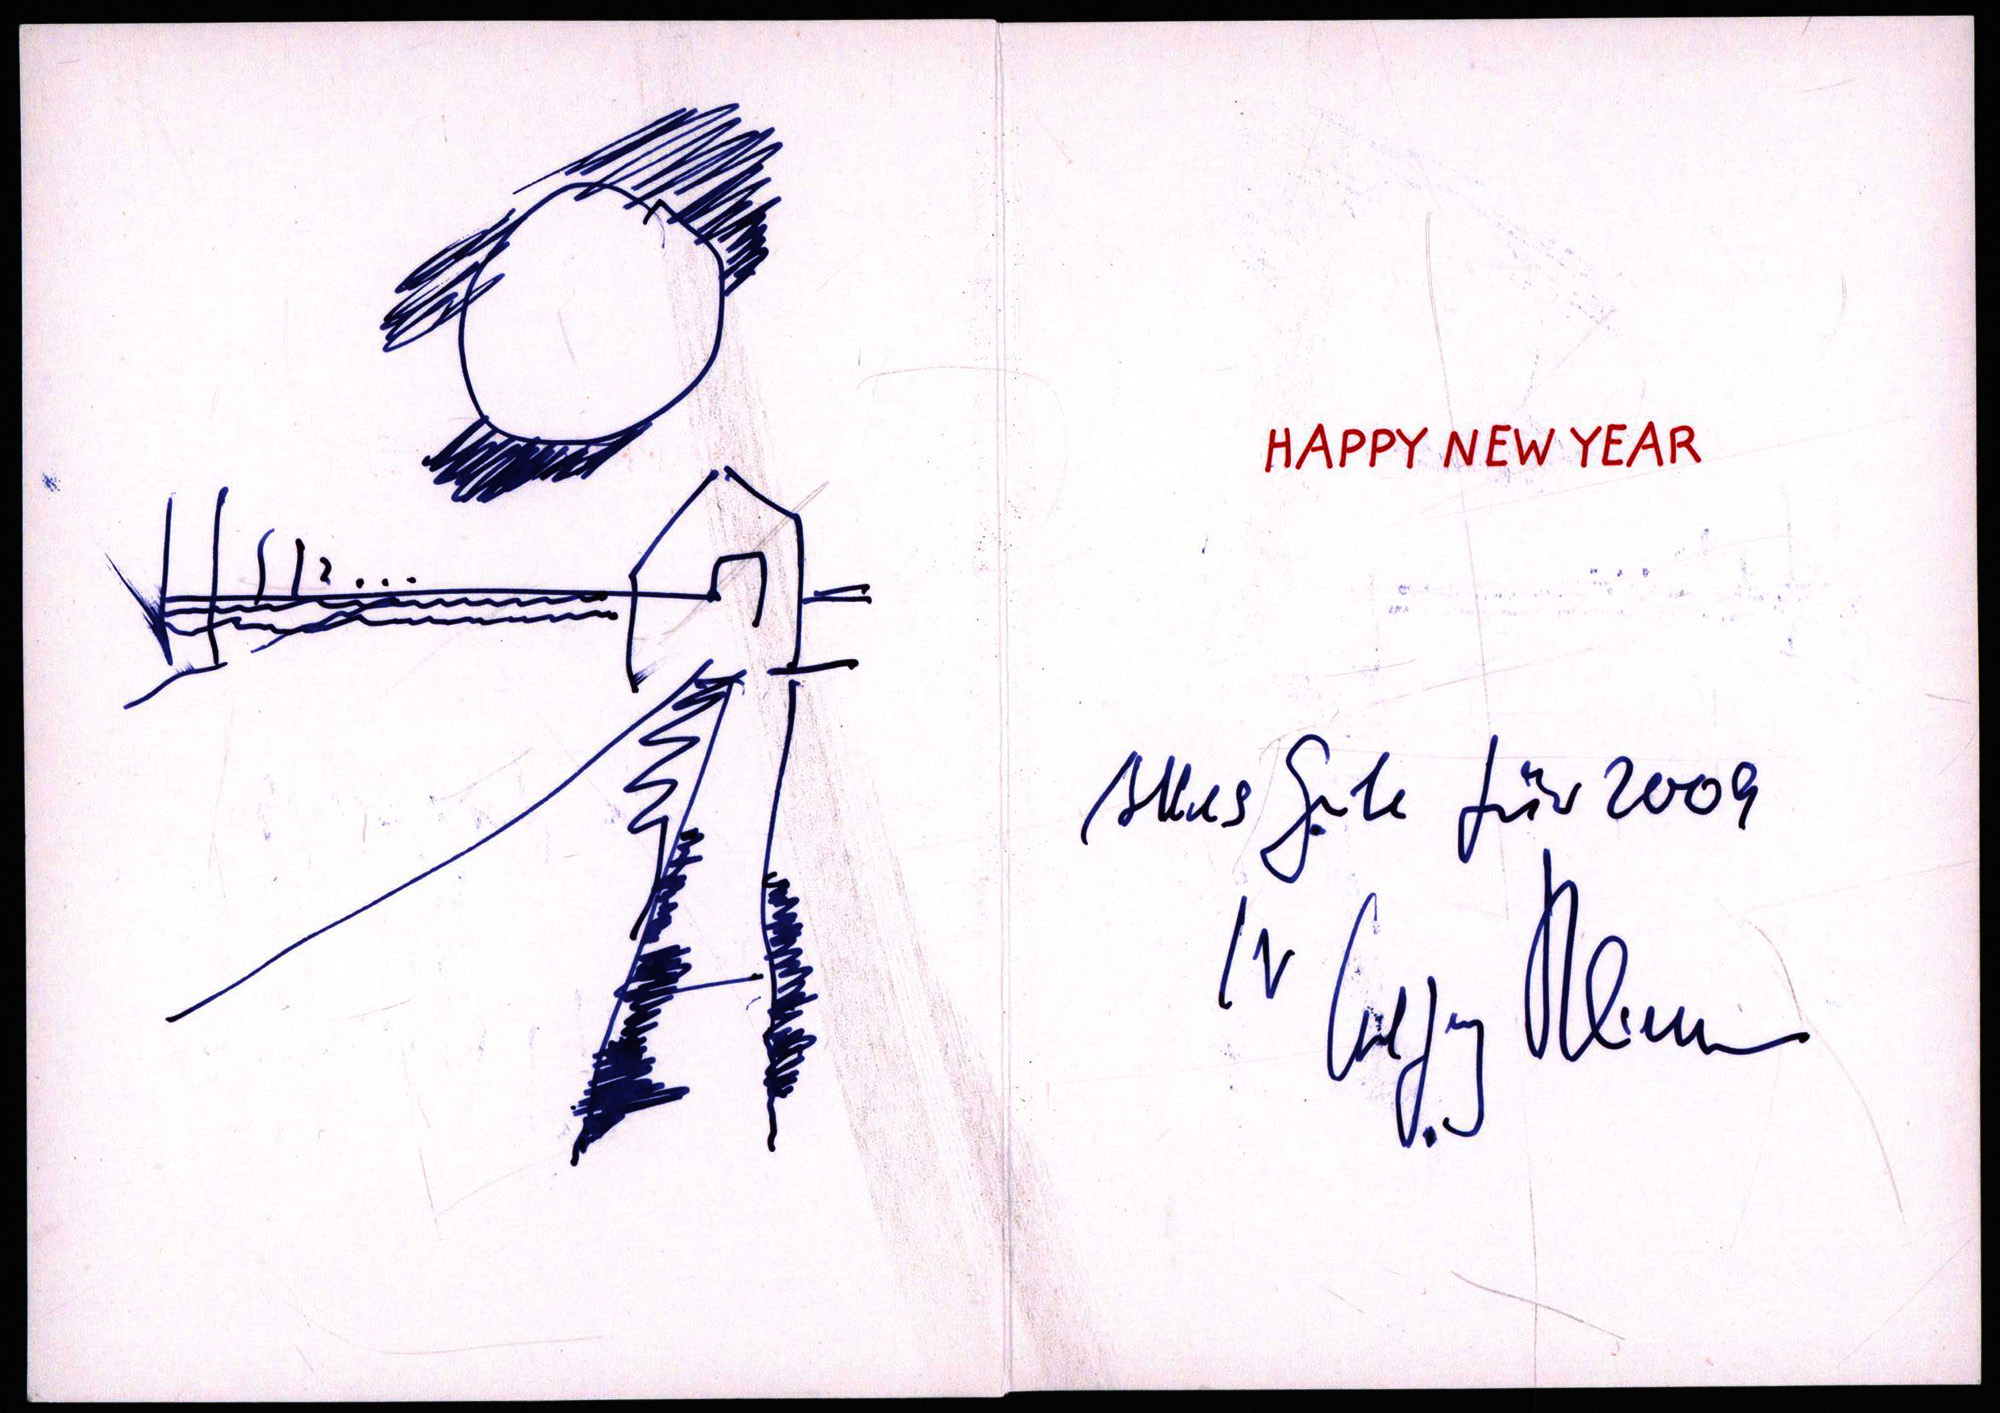 HAPPY NEW YEAR
Alles Gute für 2009
Wolfgang